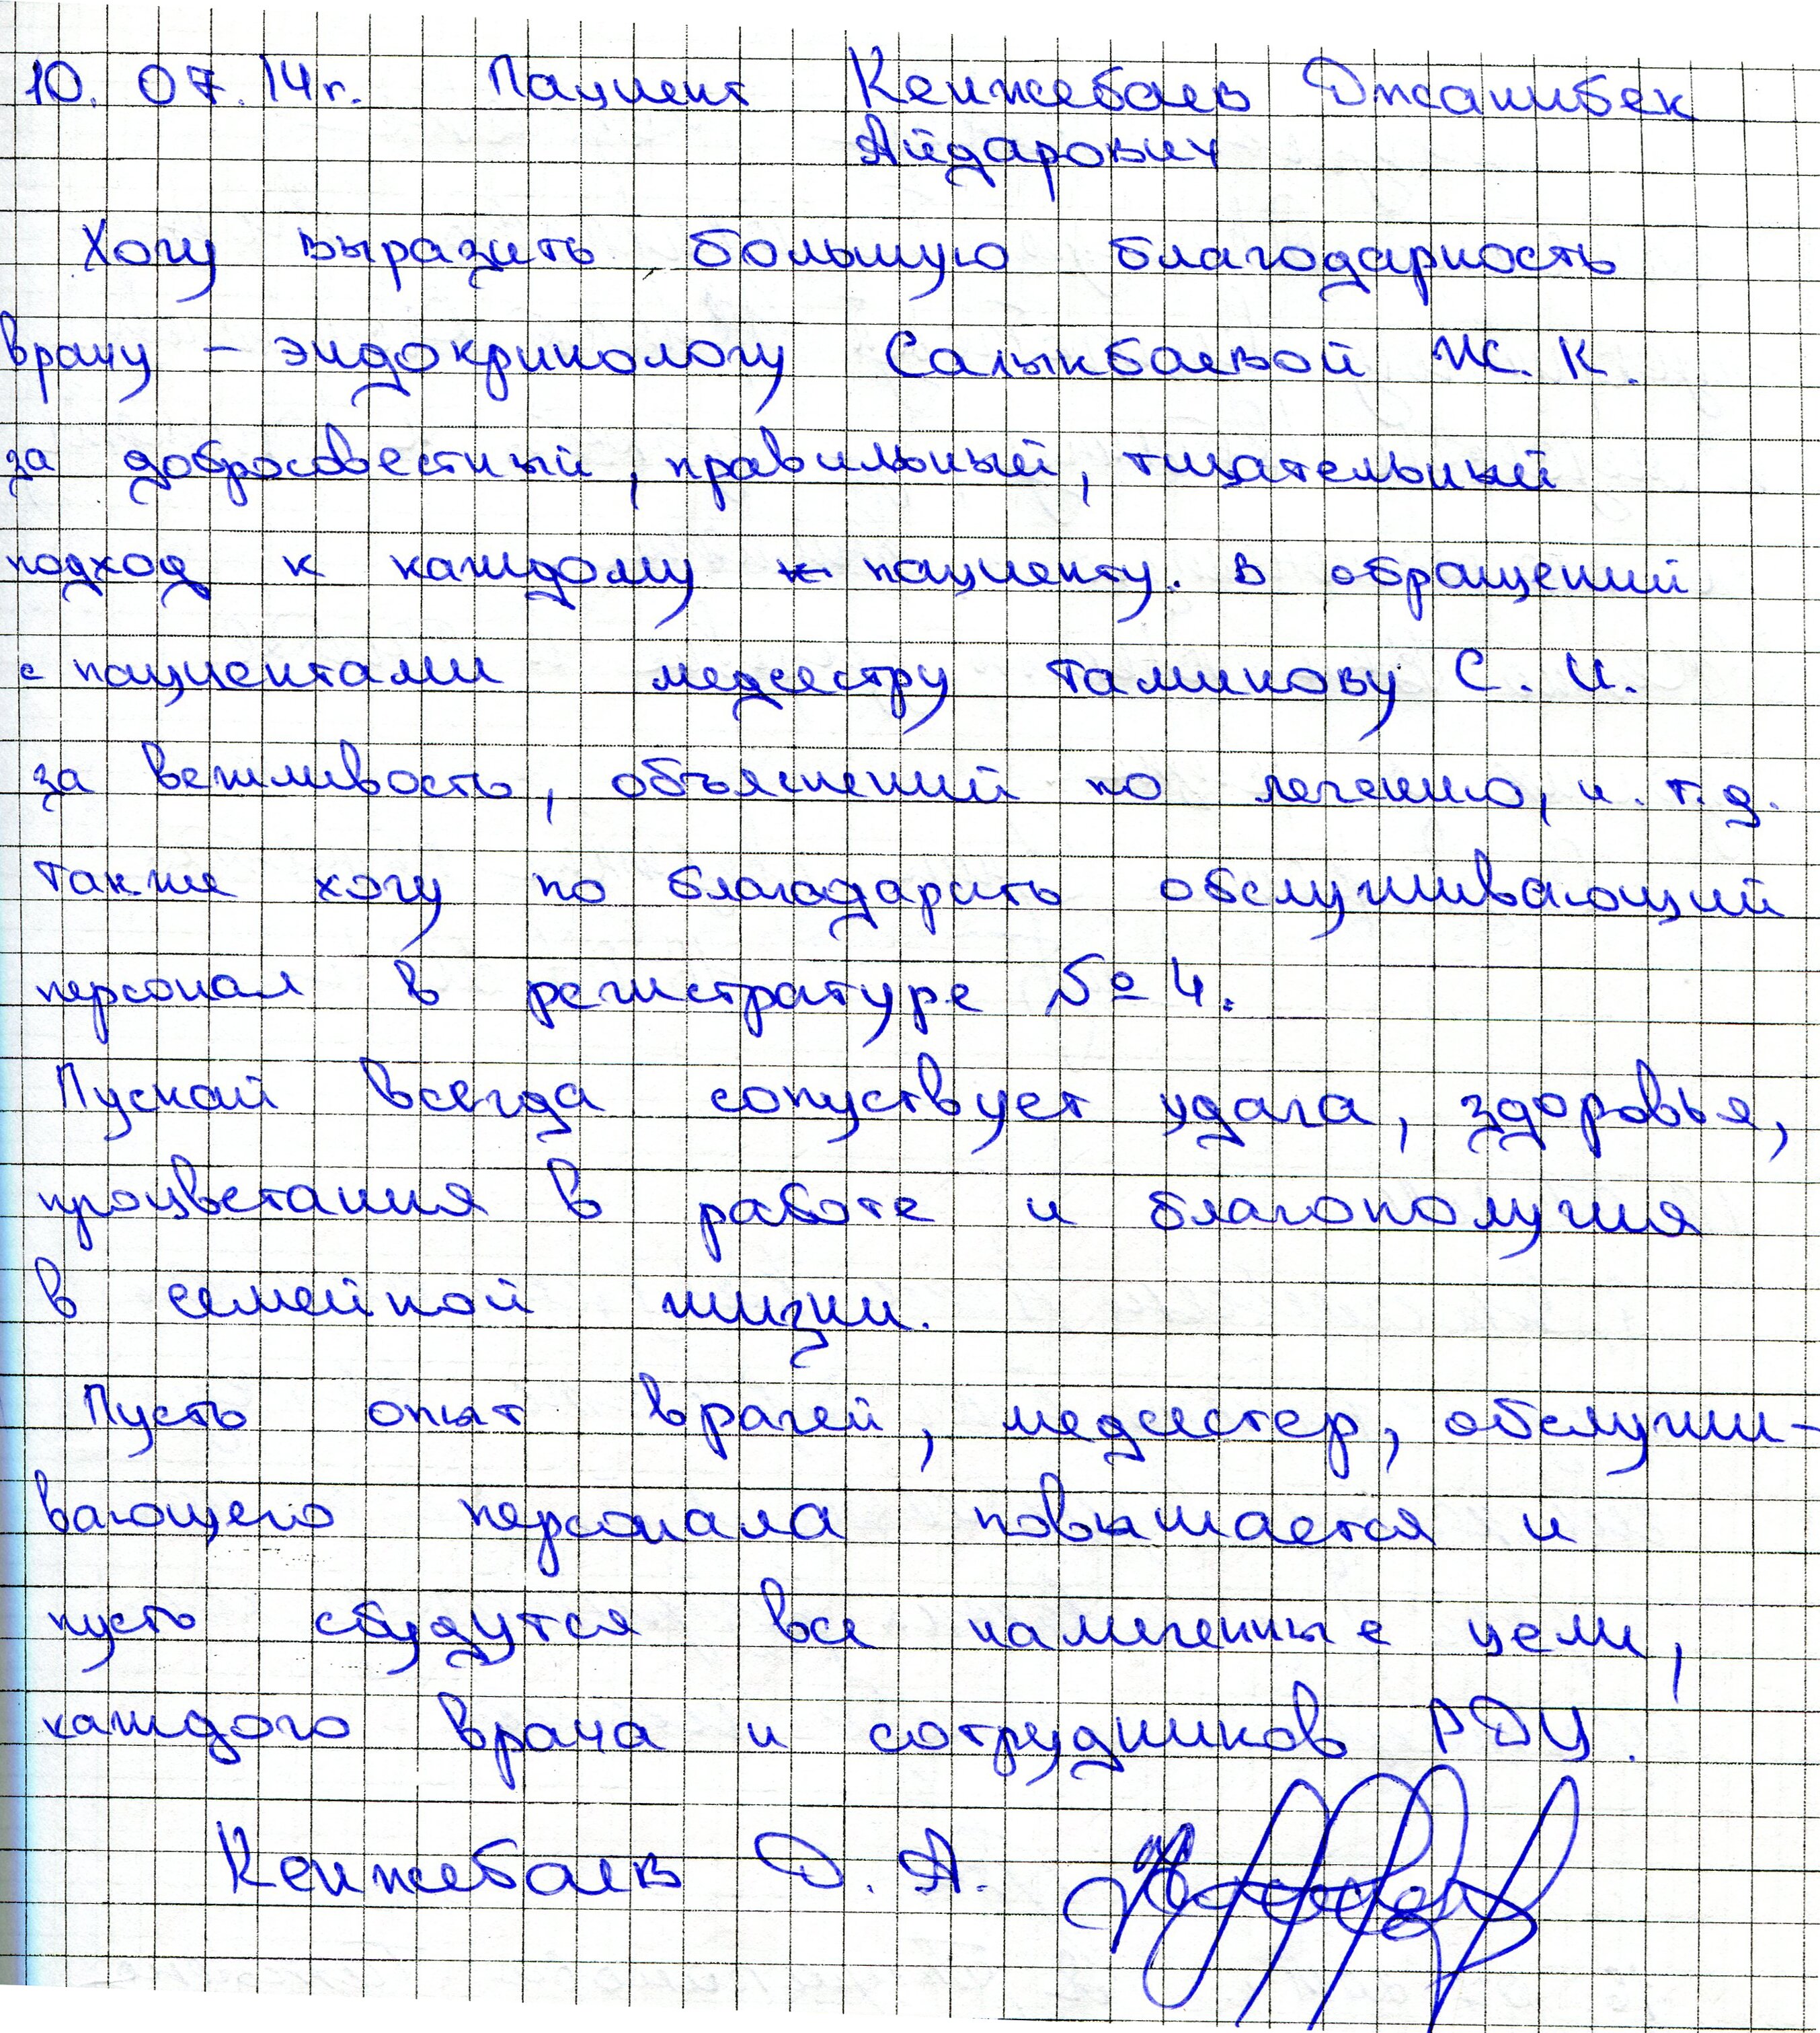 10. 07. 14г. Пациент Кенжебаев Джанибек
Айдарович
Хочу выразить большую благодарность
врачу - эндокринологу Салыкбаевой Ж. К.
за добросовестный, правильный, тщательный
подход к каждому пациенту. в обращений
с пациентами медсестру Таминову С. И.
за вежливость, объяснений по лечению, и. т. д.
также хочу по благодарить обслуживающий
персонал в регистратуре № 4.
Пускай всегда сопуствует удача, здоровья,
процветания в работе и благополучия
в семейной жизни.
Пусть опыт врачей, медсестер, обслужи-
вающего персонала повышается и
пусть сбудутся все намеченные цели,
каждого врача и сотрудников РДЦ.
Кенжебаев Д. А.